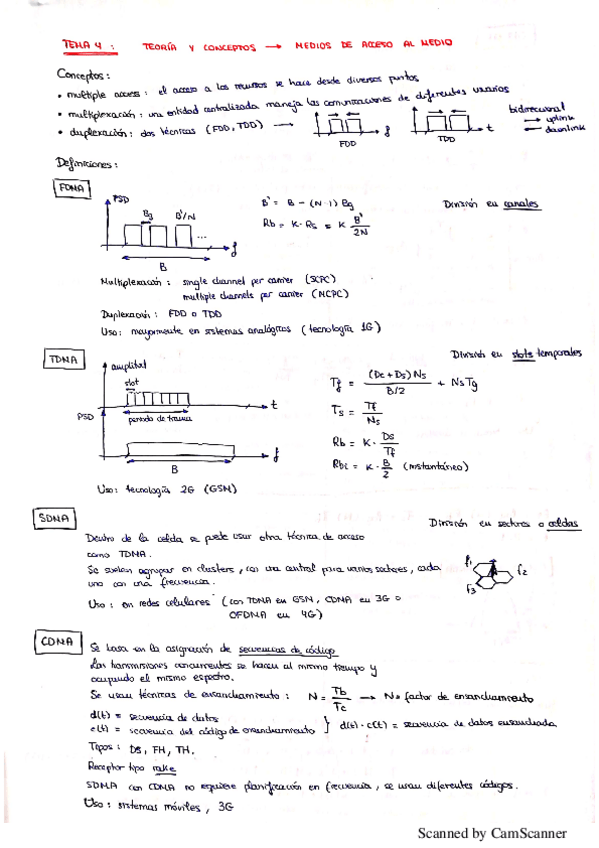 TEMA 4 : TEORÍA Y CONCEPTOS → MEDIOS DE ACCESO AL MEDIO
Conceptos :
• multiple access : el acceso a los recursos se hace desde diversos puntos
• multiplexación : una entidad centralizada maneja las comunicaciones de diferentes usuarios
• duplexación : dos técnicas (FDD, TDD) → f FDD t TDD bidireccional → uplink ← downlink
Definiciones :
FDMA
PSD Bg B'/N ... f B
B' = B - (N-1) Bg
Rb = K · Rs = K B'/2N
División en canales
Multiplexación : single channel per carrier (SCPC)
multiple channels per carrier (MCPC)
Duplexación : FDD o TDD
Uso : mayormente en sistemas analógicos (tecnología 1G)
TDMA
División en slots temporales
amplitud
slot
t
periodo de trama
PSD
f
B
Tf = (Dc + Ds) Ns / B/2 + Ns Tg
Ts = Tf / Ns
Rb = K · Ds / Tf
Rbi = K · B / 2 (instantáneo)
Uso : tecnología 2G (GSM)
SDMA
División en sectores o celdas
Dentro de la celda se puede usar otra técnica de acceso
como TDMA.
Se suelen agrupar en clusters, con una central para varios sectores, cada
uno con una frecuencia.
f1 f2 f3
Uso : en redes celulares (con TDMA en GSM, CDMA en 3G o
OFDMA en 4G)
CDMA
Se basa en la asignación de secuencias de código
Las transmisiones concurrentes se hacen al mismo tiempo y
ocupando el mismo espectro.
Se usan técnicas de ensanchamiento : N = Tb / Tc → N = factor de ensanchamiento
d(t) = secuencia de datos
c(t) = secuencia del código de ensanchamiento } d(t) · c(t) = secuencia de datos ensanchada
Tipos : DS, FH, TH.
Receptor tipo rake
SDMA con CDMA no requiere planificación en frecuencia, se usan diferentes códigos.
Uso : sistemas móviles, 3G
Scanned by CamScanner